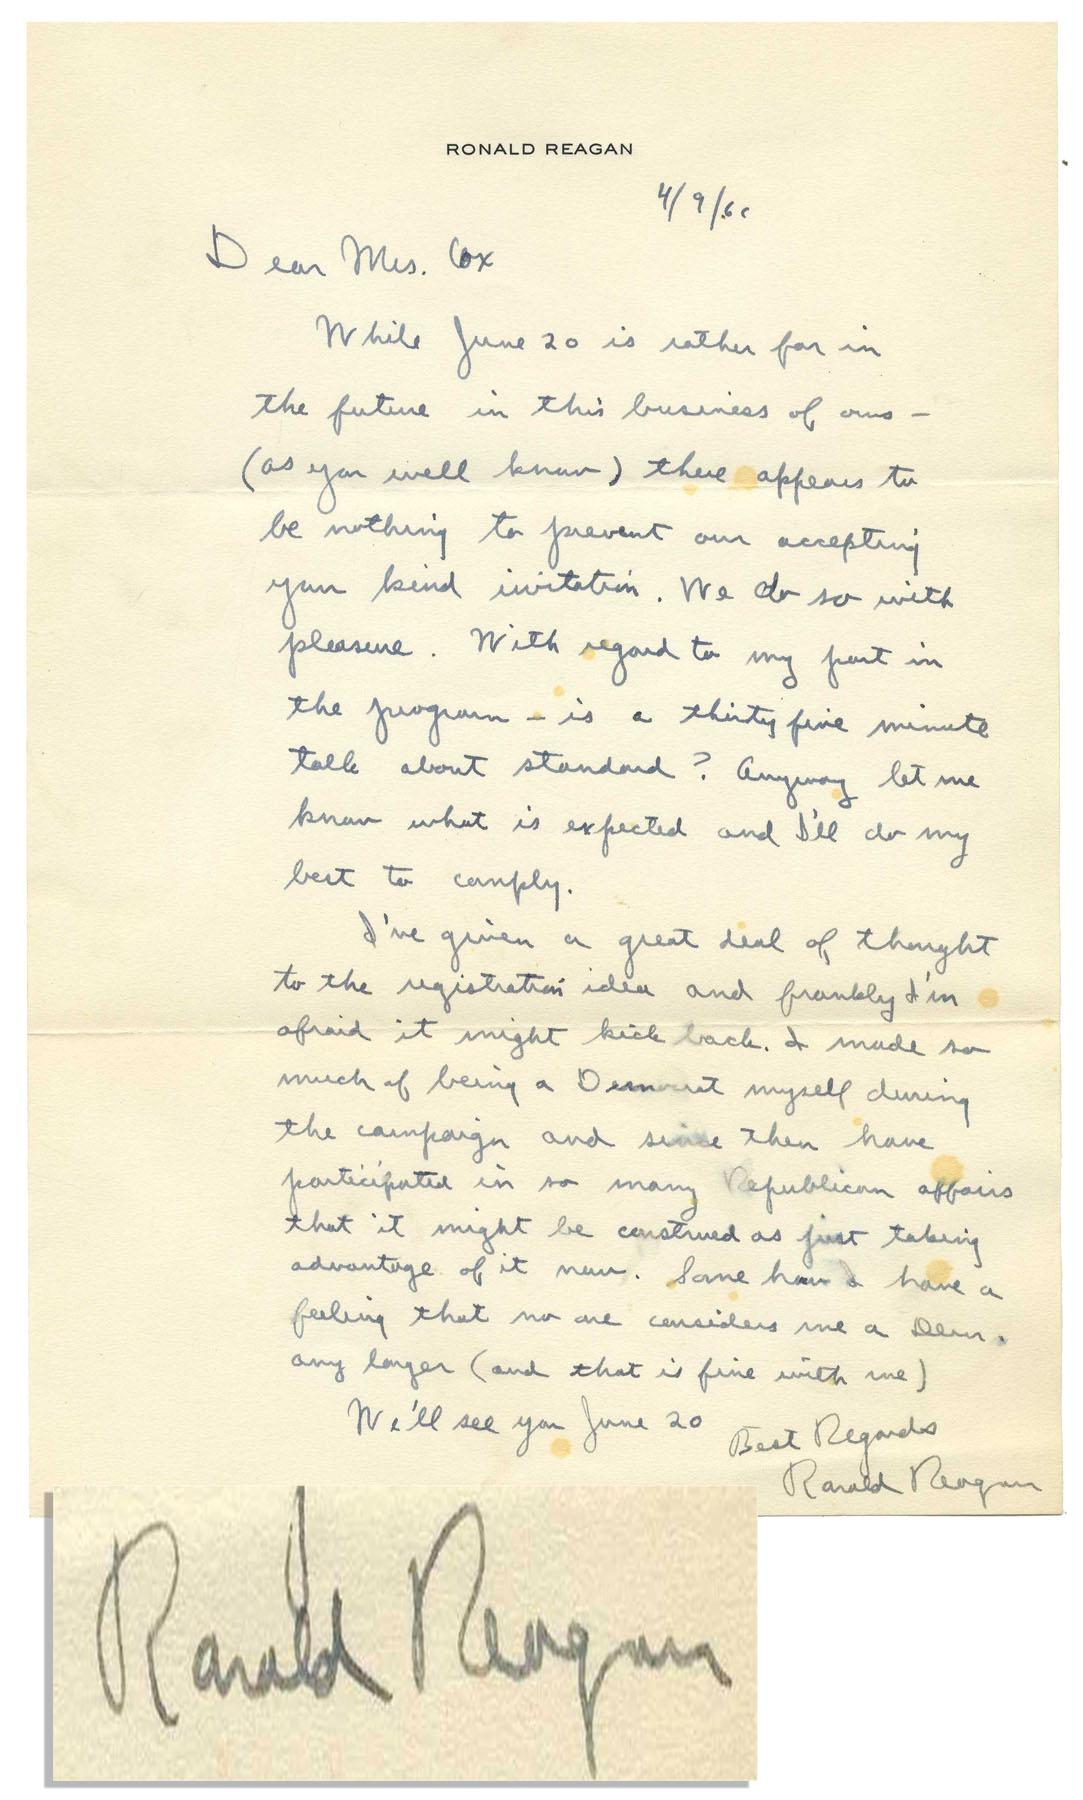 RONALD REAGAN
4/9/6
Dear Mrs. Cox
While June 20 is rather far in
the future in this business of ours –
(as you well know) there appears to
be nothing to prevent our accepting
your kind invitation. We do so with
pleasure. With regard to my part in
the program – is a thirty five minute
talk about standard? Anyway let me
know what is expected and I'll do my
best to comply.
I've given a great deal of thought
to the registration idea and frankly I'm
afraid it might kick back. I made so
much of being a Democrat myself during
the campaign and since then have
participated in so many Republican affairs
that it might be construed as just taking
advantage of it now. Some how I have a
feeling that no one considers me a Dem.
any longer (and that is fine with me)
We'll see you June 20
Best Regards
Ronald Reagan
Ronald Reagan